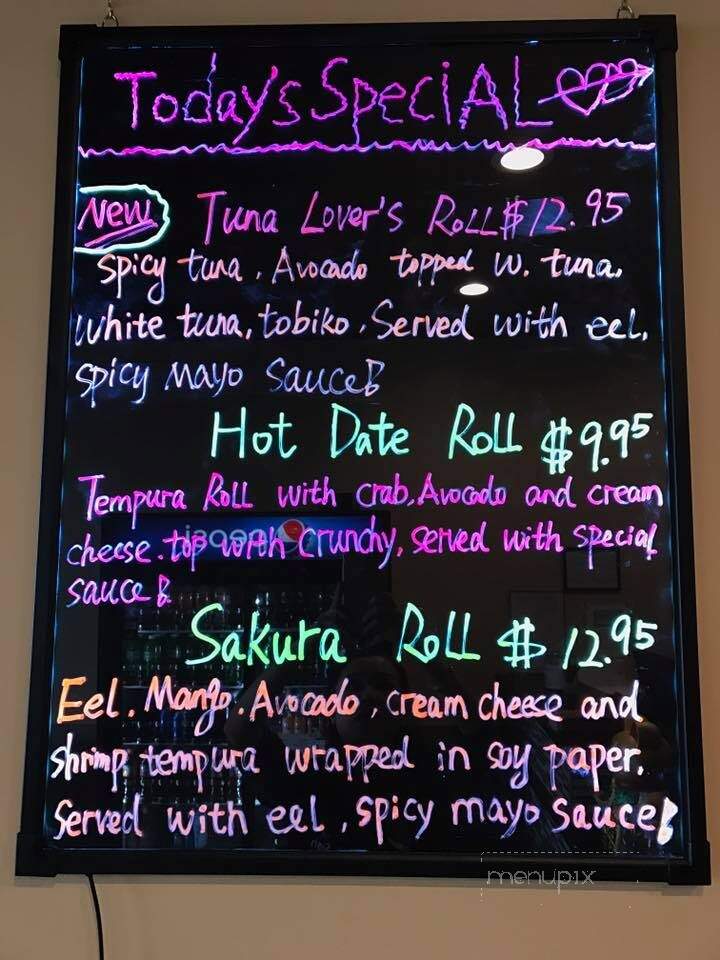 Today's Special
New Tuna Lover's Roll $12.95
Spicy tuna, Avocado topped w. tuna,
white tuna, tobiko, Served with eel,
spicy mayo sauce!
Hot Date Roll $9.95
Tempura Roll with crab, Avocado and cream
cheese. top with crunchy, served with special
sauce!
pepsi
Sakura Roll $12.95
Eel, Mango, Avocado, cream cheese and
shrimp tempura wrapped in soy paper,
Served with eel, spicy mayo sauce!
menupix